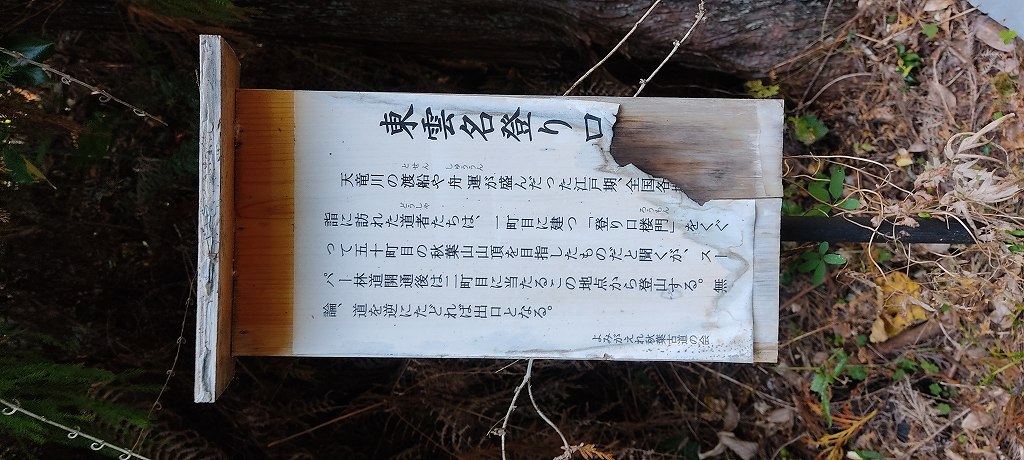 東雲名登り口
とせん しゅううん
天竜川の渡船や舟運が盛んだった江戸期、全国各
どうしゃ ろうもん
詣に訪れた道者たちは、一町目に建つ「登り口楼門」をくぐ
って五十町目の秋葉山山頂を目指したものだと聞くが、スー
パー林道開通後は二町目に当たるこの地点から登山する。無
論、道を逆にたどれば出口となる。
よみがえれ秋葉古道の会